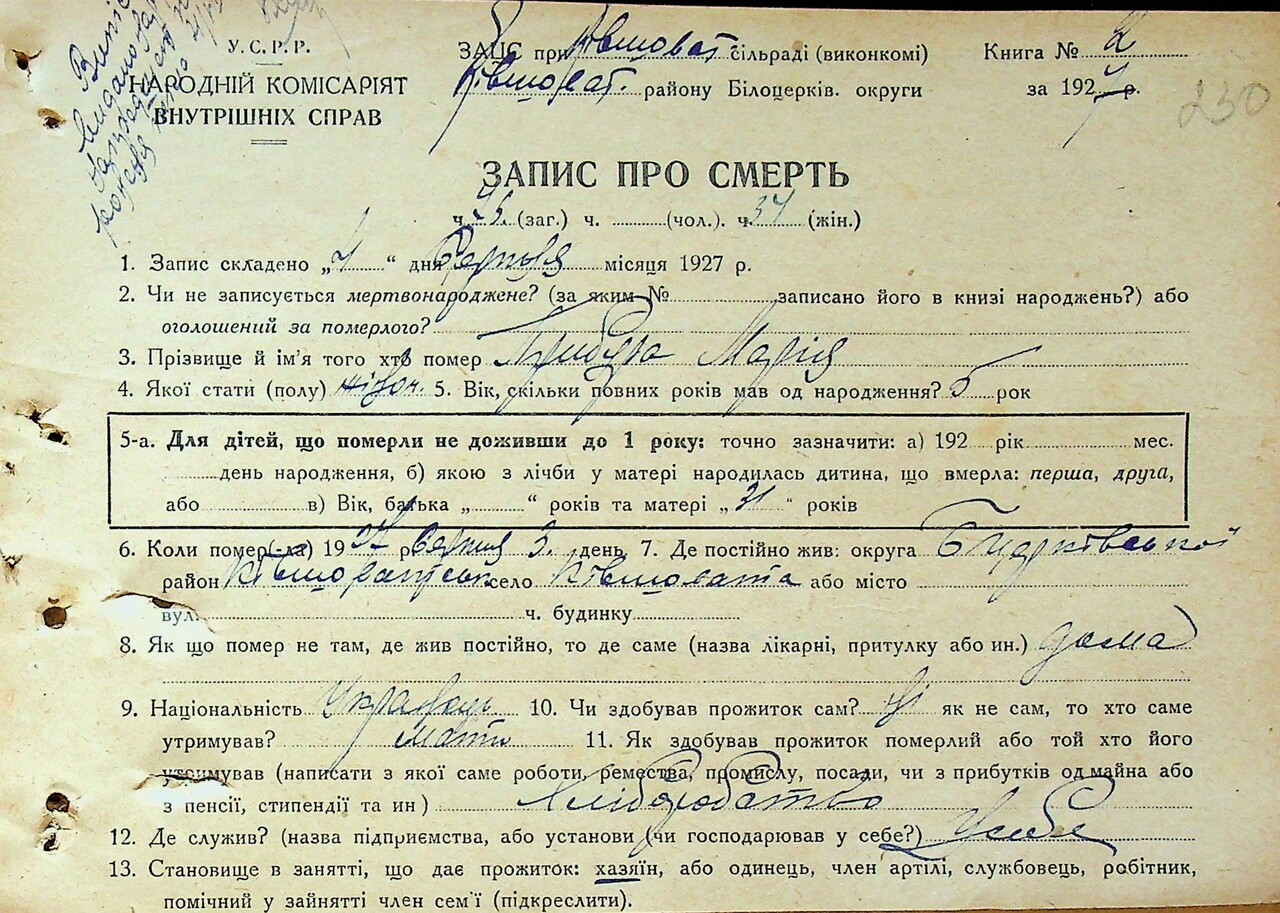 У.С.Р.Р.
НАРОДНІЙ КОМІСАРІЯТ
ВНУТРІШНІХ СПРАВ
ЗАЦС при Ківшоват сільраді (виконкомі)
Ківшоват. району Білоцерків. округи
Книга № 2
за 1927 р.
230
ЗАПИС ПРО СМЕРТЬ
ч. 75. (заг.) ч. (чол.). ч. 37 (жін.)
1. Запис складено „4“ дня Серпня місяця 1927 р.
2. Чи не записується мертвонароджене? (за яким № записано його в книзі народжень?) або
оголошений за померлого?
3. Прізвище й ім'я того хто помер Марія
4. Якої стати (полу) жіноч. 5. Вік, скільки повних років мав од народження? 5 рок
5-а. Для дітей, що померли не доживши до 1 року: точно зазначити: а) 192 рік мес.
день народження, б) якою з лічби у матері народилась дитина, що вмерла: перша, друга,
або в) Вік, батька „ “ років та матері „31“ років
6. Коли помер(-ла) 1927 р Серпня 3. день, 7. Де постійно жив: округа
район Ківшоватськ село Ківшовата або місто
вул. ч. будинку
8. Як що помер не там, де жив постійно, то де саме (назва лікарні, притулку або ин.) дома
9. Національність Українець 10. Чи здобував прожиток сам? ні як не сам, то хто саме
утримував? мати 11. Як здобував прожиток померлий або той хто його
утримував (написати з якої саме роботи, ремества, промислу, посади, чи з прибутків од майна або
з пенсії, стипендії та ин) Хліборобство
12. Де служив? (назва підприємства, або установи (чи господарював у себе?) У себе
13. Становище в занятті, що дає прожиток: хазяїн, або одинець, член артілі, службовець, робітник,
помічний у зайнятті член сем'ї (підкреслити).